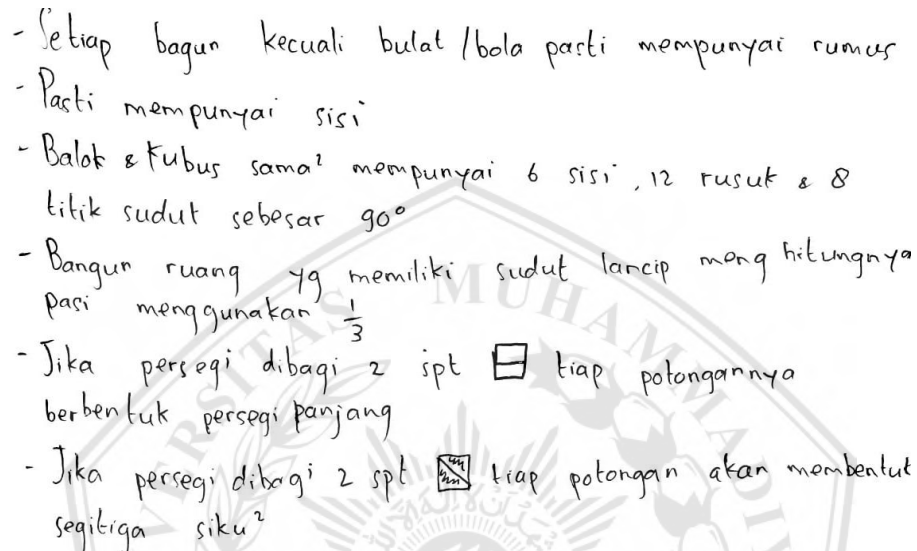 - Setiap bagun kecuali bulat /bola pasti mempunyai rumus
- Pasti mempunyai sisi
- Balok & Kubus sama² mempunyai 6 sisi, 12 rusuk & 8
titik sudut sebesar 90°
- Bangun ruang yg memiliki sudut lancip menghitungnya
pasi menggunakan 1/3
- Jika persegi dibagi 2 spt tiap potongannya
berbentuk persegi panjang
- Jika persegi dibagi 2 spt tiap potongan akan membentuk
segitiga siku²
MUHAMMADI
ERSITAS